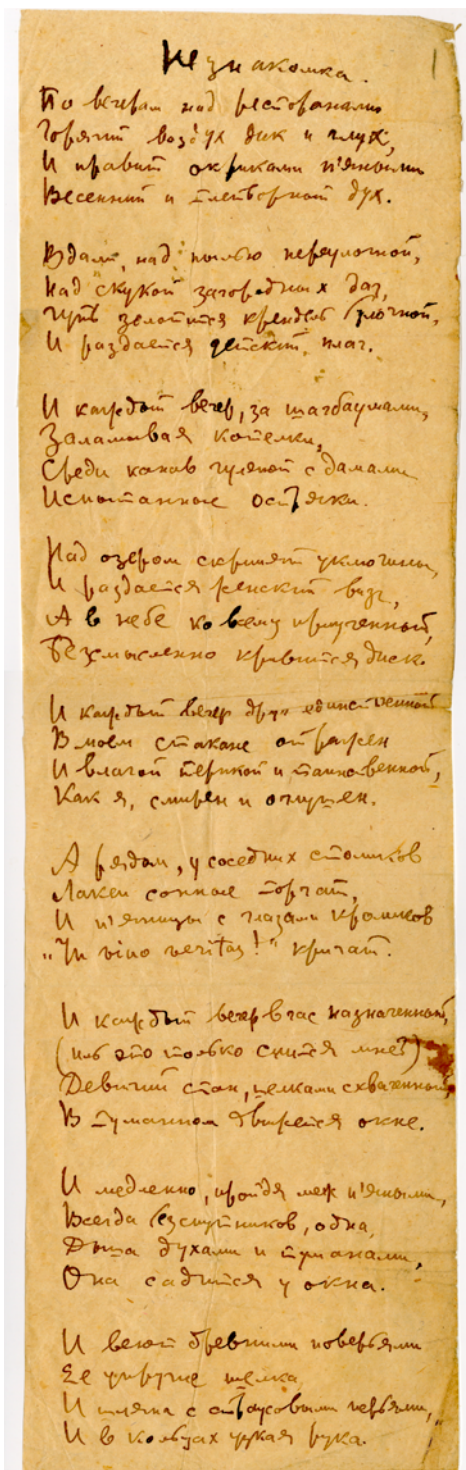 Незнакомка.
1
По вечерам над ресторанами
Горячий воздух дик и глух,
И правит окриками п'яными
Весенний и тлетворный дух.
Вдали, над пылью переулочной,
Над скукой загородных дач,
Чуть золотится крендель булочной,
И раздается детский плач.
И каждый вечер, за шлагбаумами,
Заламывая котелки,
Среди канав гуляют с дамами
Испытанные остряки.
Над озером скрипят уключины,
И раздается женский визг,
А в небе ко всему приученный,
Бессмысленно кривится диск.
И каждый вечер друг единственный
В моем стакане отражен
И влагой терпкой и таинственной,
Как я, смирен и оглушен.
А рядом, у соседних столиков
Лакеи сонные торчат,
И п'яницы с глазами кроликов
„In vino veritas!" кричат.
И каждый вечер в час назначенный,
(иль это только снится мне?)
Девичий стан, шелками схваченный,
В туманном движется окне.
И медленно, пройдя меж п'яными,
Всегда без спутников, одна,
Дыша духами и туманами,
Она садится у окна.
И веют древними поверьями
Ее упругие шелка,
И шляпа с страусовыми перьями,
И в кольцах узкая рука.